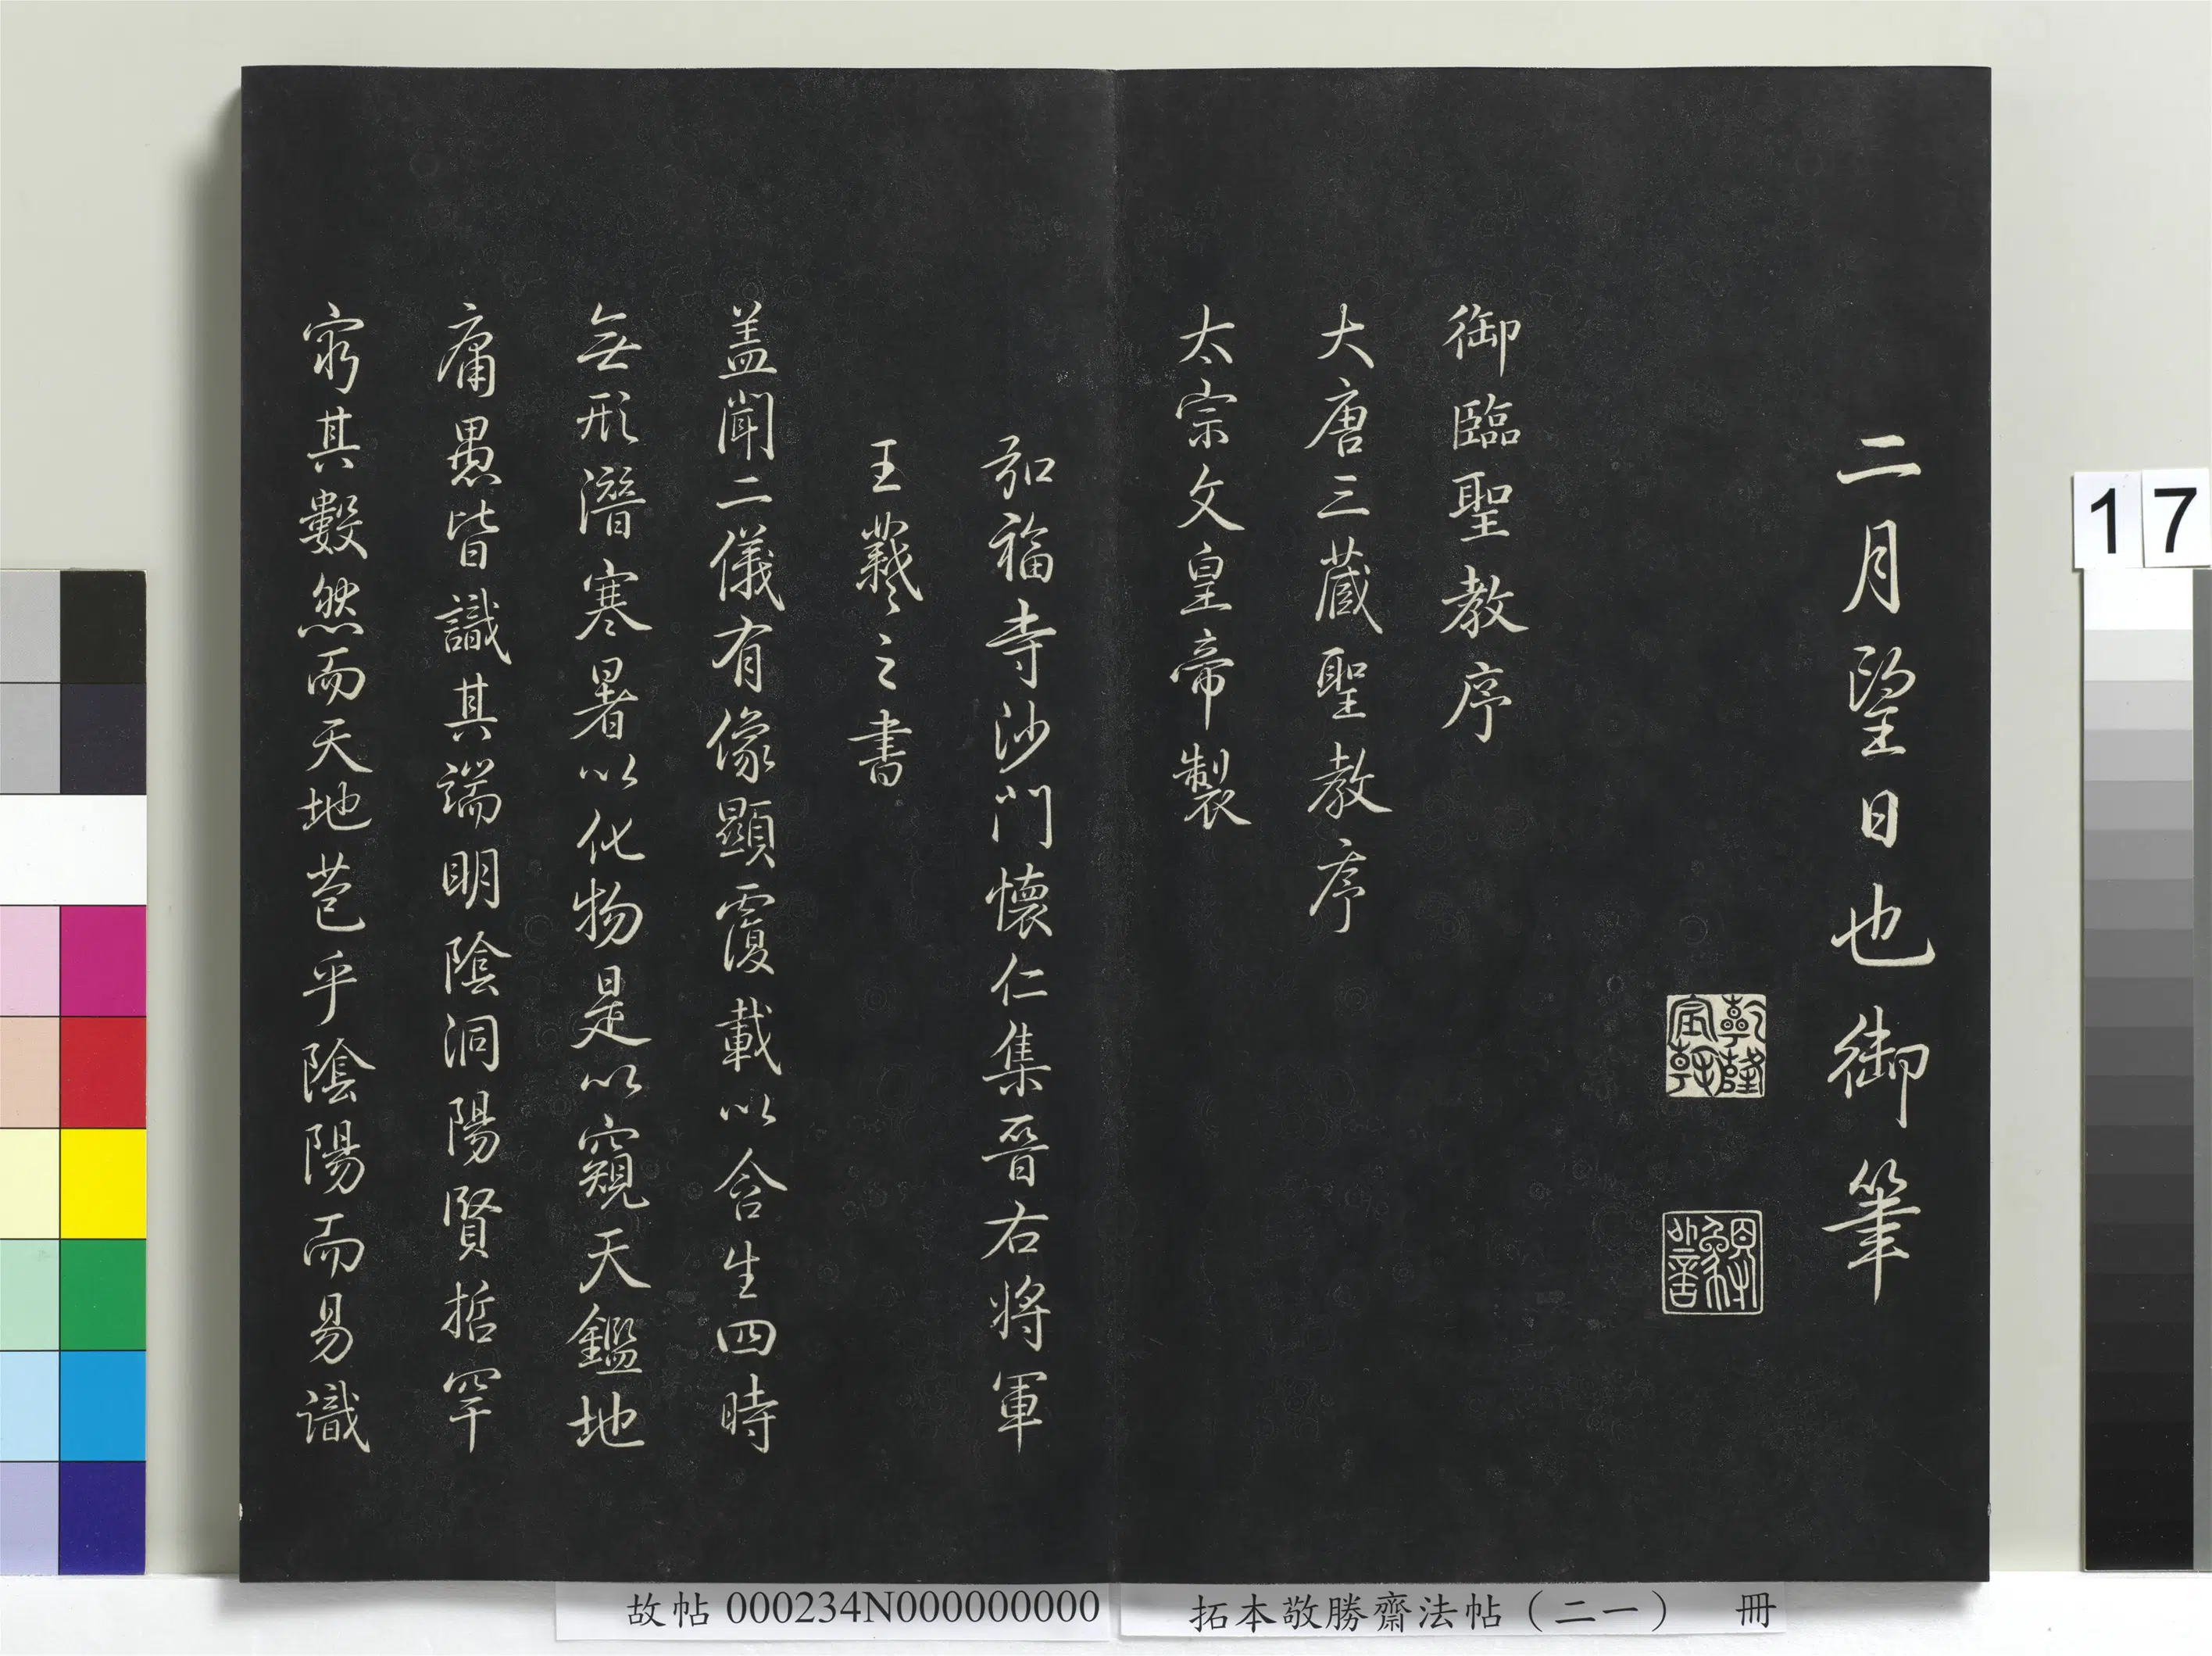 二月望日也御筆
乾隆宸翰
御臨聖教序
大唐三藏聖教序
太宗文皇帝製
弘福寺沙門懷仁集晉右將軍
王羲之書
盖聞二儀有像顯覆載以含生四時
無形潛寒暑以化物是以窺天鑑地
庸愚皆識其端明陰洞陽賢哲罕
窮其數然而天地苞乎陰陽而易識
17
拓本敬勝齋法帖（二一） 冊
故帖 000234N000000000